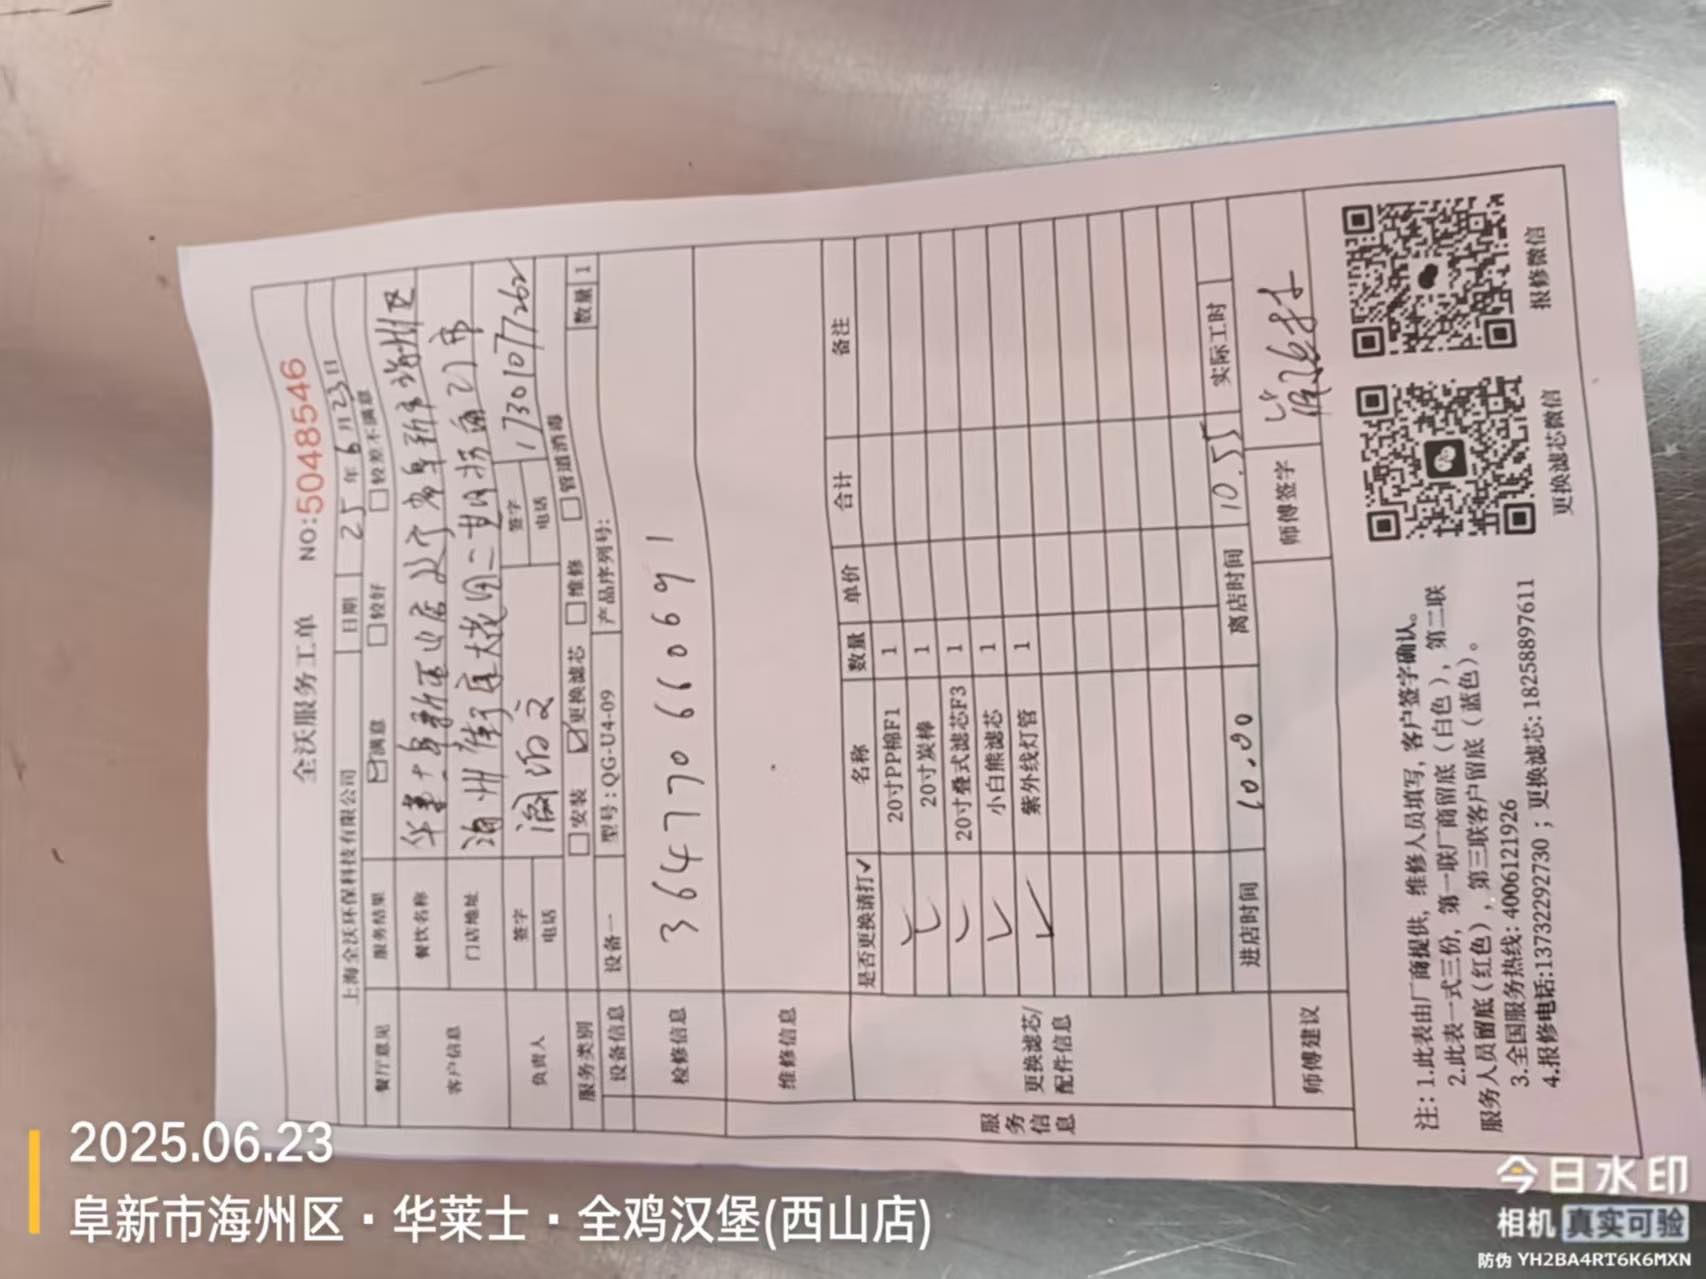 全沃服务工单 NO:5048546
上海全沃环保科技有限公司 日期 25年6月23日
餐厅意见 服务结果 ☑满意 ☐较好 ☐较差不满意
客户信息 餐饮名称 华莱士阜新西山店辽宁省阜新市海州区
门店地址 海州街
负责人 签字 签字
电话 电话 17301077262
服务类别 ☐安装 ☑更换滤芯 ☐维修 ☐管道消毒
设备信息 设备一 型号:QG-U4-09 产品序列号: 数量 1
检修信息 364770660691
维修信息
服务信息
更换滤芯/配件信息
是否更换请打✓ 名称 数量 单价 合计 备注
✓ 20寸PP棉F1 1
✓ 20寸炭棒 1
✓ 20寸叠式滤芯F3 1
✓ 小白熊滤芯 1
✓ 紫外线灯管 1
进店时间 10.00 离店时间 10.55 实际工时
师傅建议 师傅签字
注:1.此表由厂商提供,维修人员填写,客户签字确认。
2.此表一式三份,第一联厂商留底(白色),第二联
服务人员留底(红色),第三联客户留底(蓝色)。
3.全国服务热线:4006121926
4.报修电话:13732292730;更换滤芯:18258897611
更换滤芯微信
报修微信
2025.06.23
阜新市海州区·华莱士·全鸡汉堡(西山店)
今日水印
相机 真实可验
防伪 YH2BA4RT6K6MXN